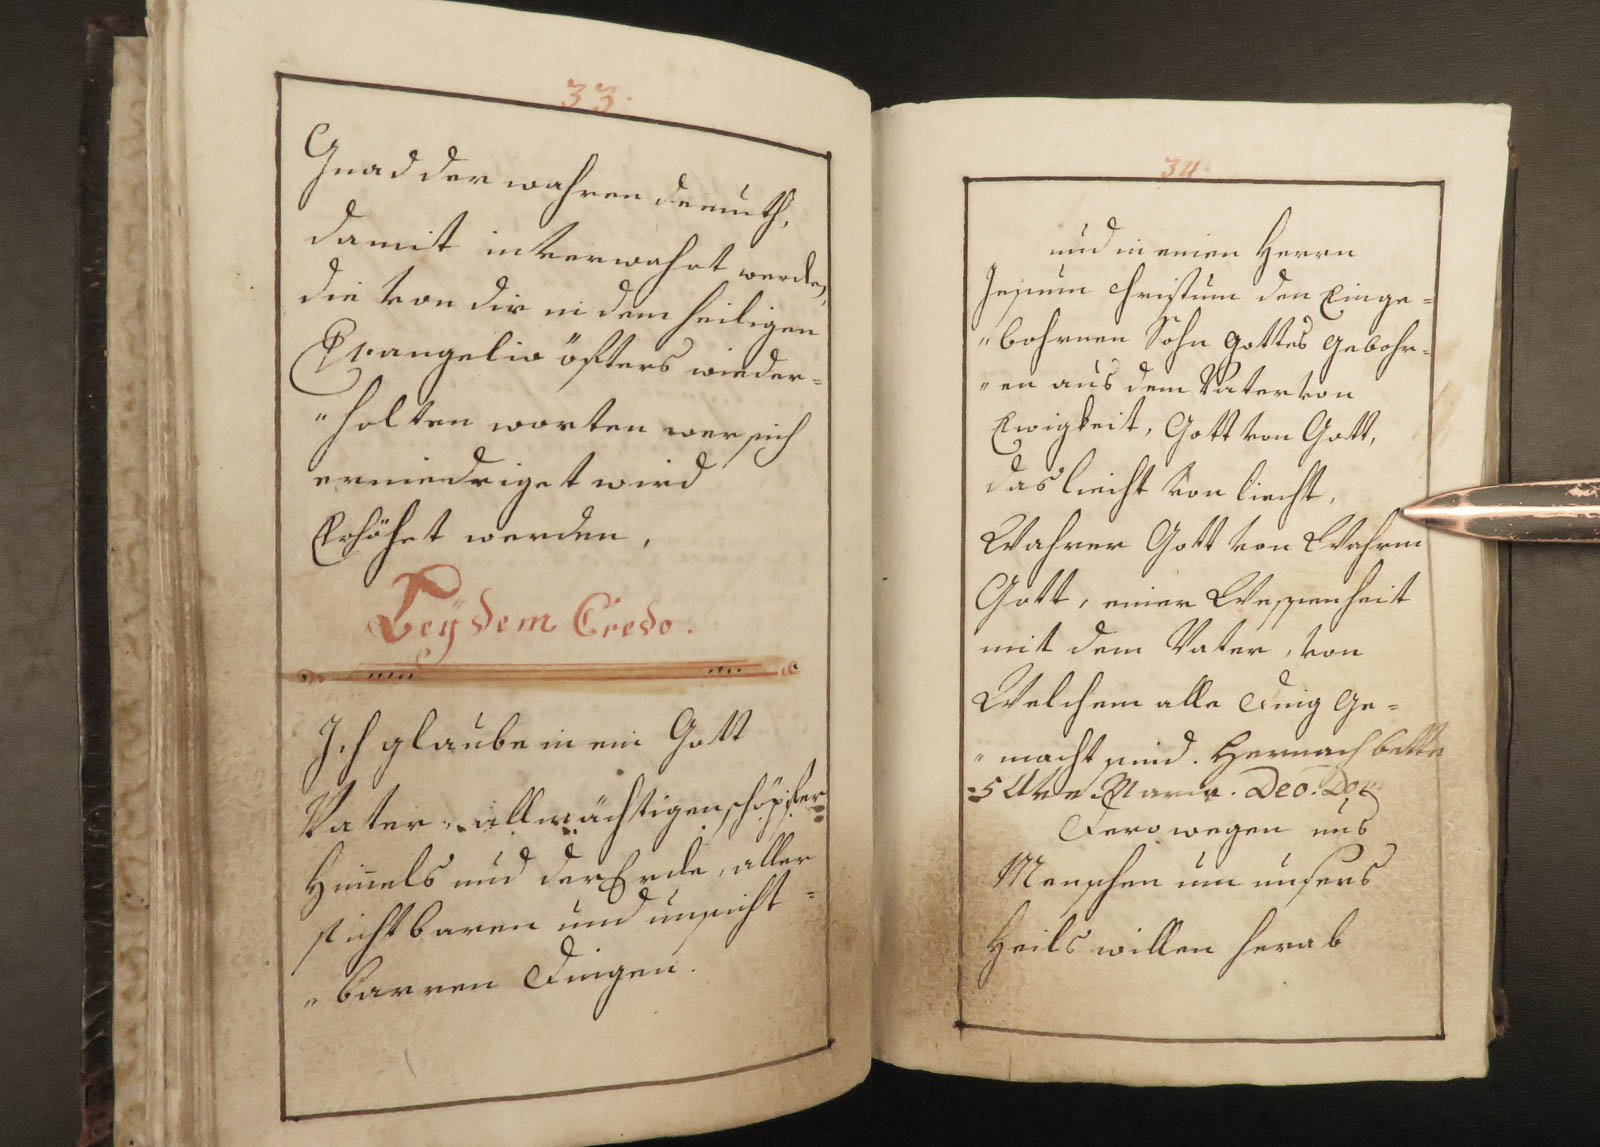 33.
Gnad der wahren demuth,
damit in verwahrt werden,
die von dir in dem heiligen
Evangelio öfters wieder=
"holten worten wer sich
erniedriget wird
Erhöhet werden,
Beÿ dem Credo.
Ich glaube in ein Gott
Vater, allmächtigen schöpffer
Him̅els und der Erde, aller
sichtbaren und unsicht=
"barren Dingen.
34.
und in einen Herrn
Jesum Christum den Einge=
"bohrnen Sohn Gottes Gebohr=
"en aus dem Vater von
Ewigkeit, Gott von Gott,
das liecht von liecht,
Wahrer Gott von Wahrm
Gott, einer Wessenheit
mit dem Vater, von
Welchem alle Ding Ge=
"macht sind. Hernach bette
5 Ave Maria. Deo.
Dero wegen uns
Menschen um unsers
Heils willen herab